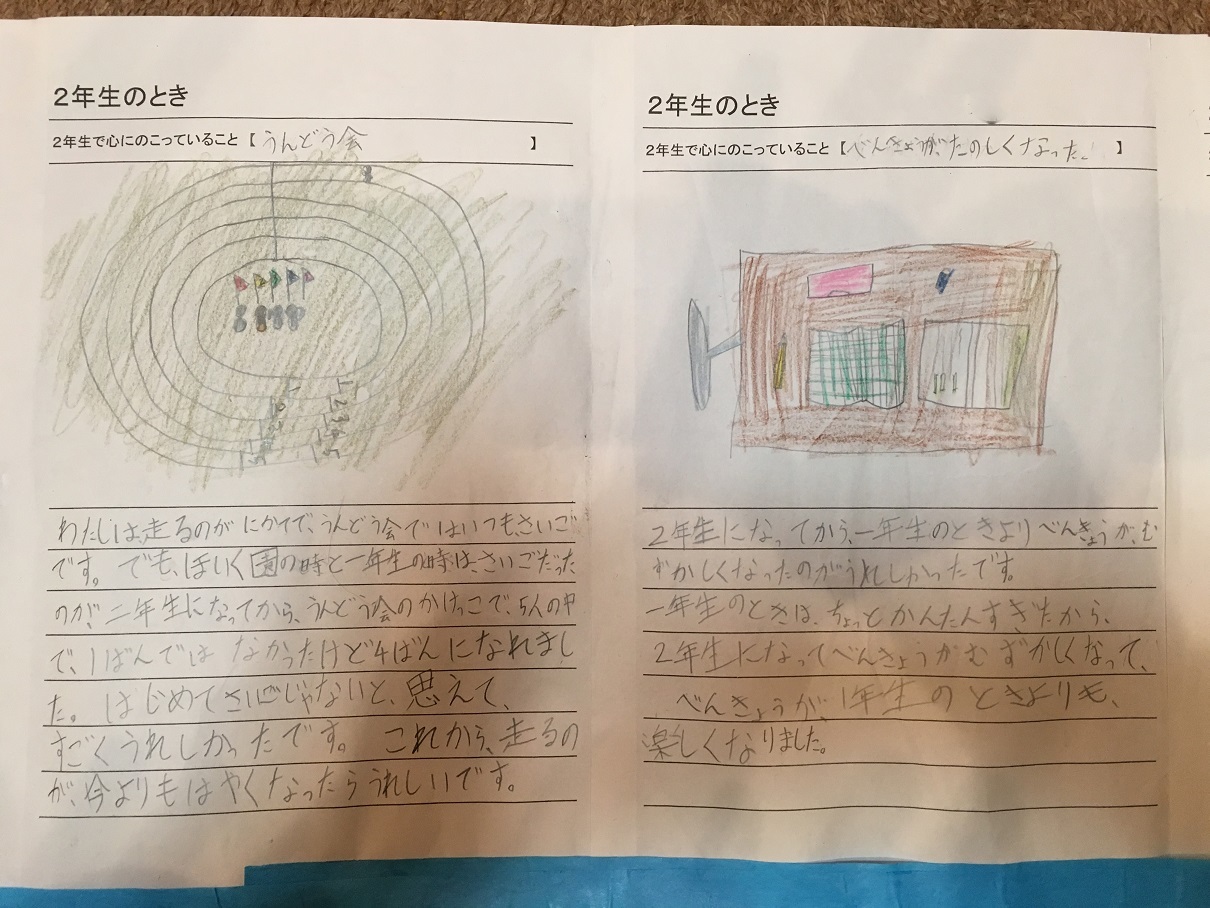 2年生のとき
2年生で心にのこっていること【うんどう会】
わたしは、走るのがにがてで、うんどう会ではいつも、さいご
です。でも、ほいく園の時と一年生の時は、さいごだった
のが、二年生になってから、うんどう会のかけっこで、5人の中
で、1ばんではなかったけど4ばんになれまし
た。はじめてさいごじゃないと、思えて、
すごくうれしかったです。これから、走るの
が、今よりもはやくなったらうれしいです。
2年生のとき
2年生で心にのこっていること【べんきょうが、たのしくなった。】
2年生になってから、一年生のときよりべんきょうが、む
ずかしくなったのがうれしかったです。
一年生のときは、ちょっとかんたんすぎたから、
2年生になってべんきょうがむずかしくなって、
べんきょうが、1年生のときよりも、
楽しくなりました。